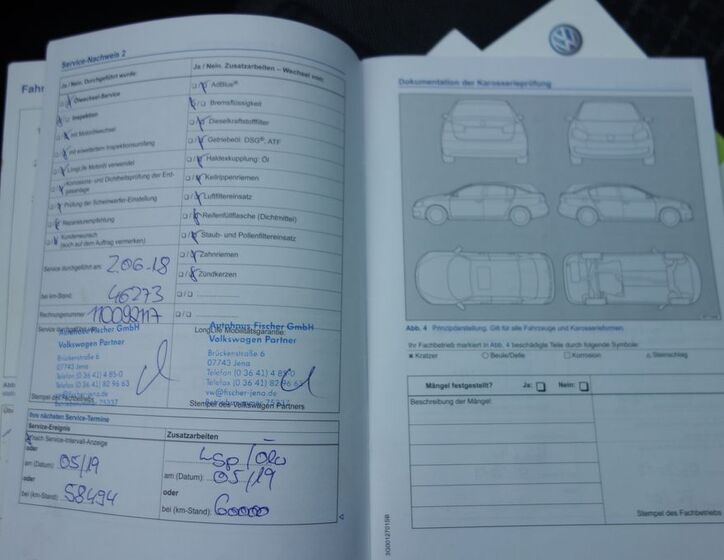 Fahr
Service-Nachweis 2
Ja / Nein. Durchgeführt wurde:
Ölwechsel-Service
Inspektion
mit Motorölwechsel
mit erweitertem Inspektionsumfang
LongLife Motoröl verwendet
Korrosions- und Dichtheitsprüfung der Erd-
gasanlage
Prüfung der Scheinwerfer-Einstellung
Reparaturempfehlung
Kundenwunsch
(auch auf dem Auftrag vermerken)
Service durchgeführt am: 2.06.18
bei km-Stand: 46273
Rechnungsnummer:
Ja / Nein. Zusatzarbeiten – Wechsel von:
AdBlue®
Bremsflüssigkeit
Dieselkraftstofffilter
Getriebeöl: DSG®, ATF
Haldexkupplung: Öl
Keilrippenriemen
Luftfiltereinsatz
Reifenfüllflasche (Dichtmittel)
Staub- und Pollenfiltereinsatz
Zahnriemen
Zündkerzen
Service durchgeführt
Autohaus Fischer GmbH
Volkswagen Partner
Brückenstraße 6
07743 Jena
Telefon (0 36 41) 4 85-0
Telefax (0 36 41) 82 96 63
Stempel des Fachbetriebs
LongLife Mobilitätsgarantie:
Autohaus Fischer GmbH
Volkswagen Partner
Brückenstraße 6
07743 Jena
Telefon (0 36 41) 4 85-0
Telefax (0 36 41) 82 96 63
vw@fischer-jena.de
Stempel des Volkswagen Partners
Ihre nächsten Service-Termine
Service-Ereignis
nach Service-Intervall-Anzeige
oder
am (Datum): 05/19
oder
bei (km-Stand): 58494
Zusatzarbeiten
am (Datum): 05/19
oder
bei (km-Stand): 60000
Dokumentation der Karosserieprüfung
Abb. 4 Prinzipdarstellung. Gilt für alle Fahrzeuge und Karosserieformen.
Ihr Fachbetrieb markiert in Abb. 4 beschädigte Teile durch folgende Symbole:
Kratzer Beule/Delle Korrosion Steinschlag
Mängel festgestellt? Ja: Nein:
Beschreibung der Mängel:
Stempel des Fachbetriebs